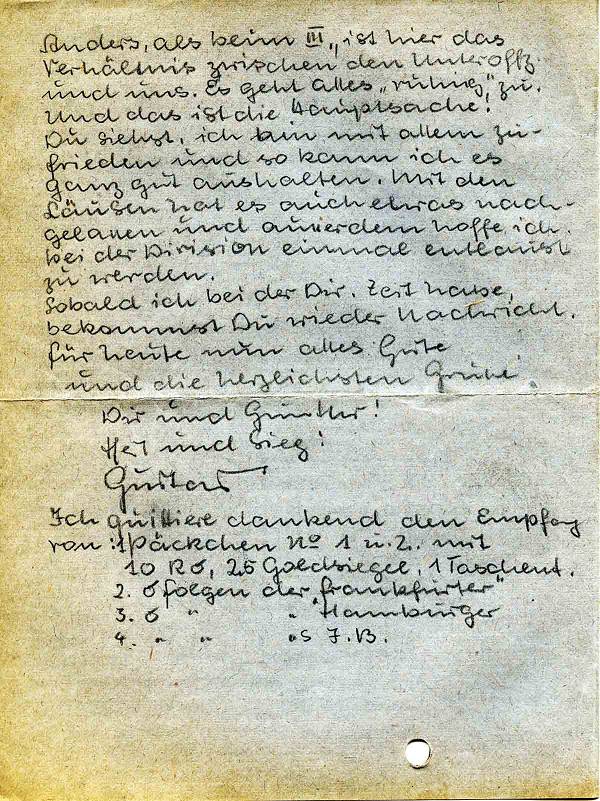 Anders, als beim III., ist hier das
Verhältnis zwischen den Unteroffz.
und uns. Es geht alles „ruhig" zu.
Und das ist die Hauptsache!
Du siehst, ich bin mit allem zu-
frieden und so kann ich es
ganz gut aushalten. Mit den
Läusen hat es auch etwas nach-
gelassen und ausserdem hoffe ich
bei der Division einmal entlaust
zu werden.
Sobald ich bei der Div. Zeit habe,
bekommst Du wieder Nachricht.
Für heute nun alles Gute
und die herzlichsten Grüße
Dir und Günther!
Heil und Sieg!
Gustav
Ich quittiere dankend den Empfang
von: 1 Päckchen No 1 u. 2. mit
10 R6, 25 Goldsiegel, 1 Taschent.
2. 6 folgen der „Frankfurter"
3. 6 " " "Hamburger
4. " " " s J.B.